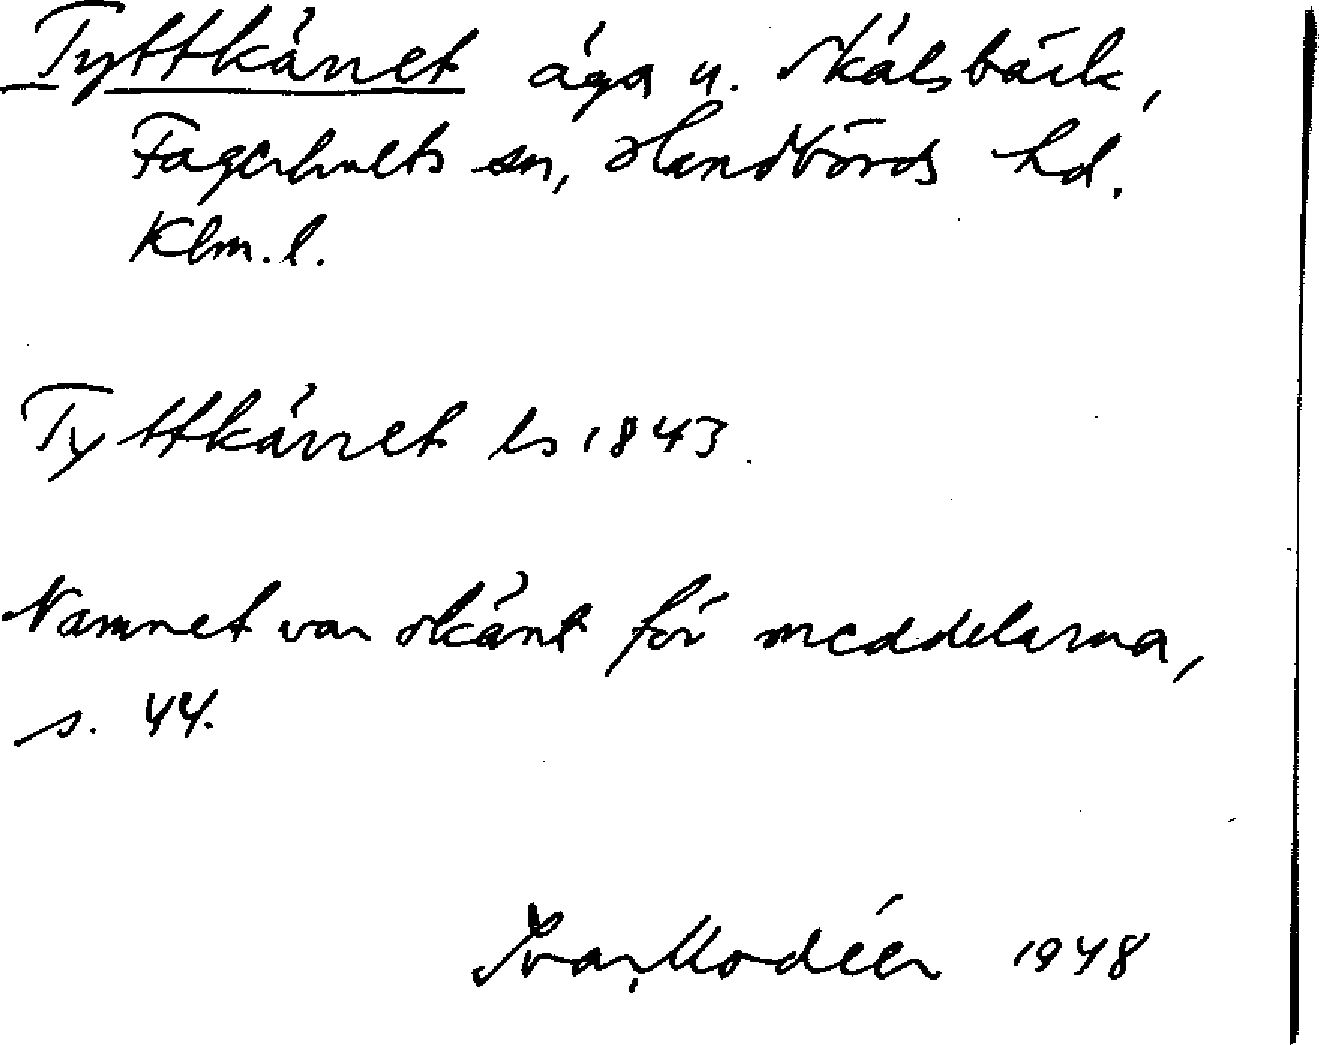 Tyttkärret äga u. Skälsbäck,
Fagerhults sn, Handbörds hd.
Klm. l.
Tyttkärret ls 1843.
Namnet var okänt för meddelarna,
s. 44.
Ivar Modéer 1948